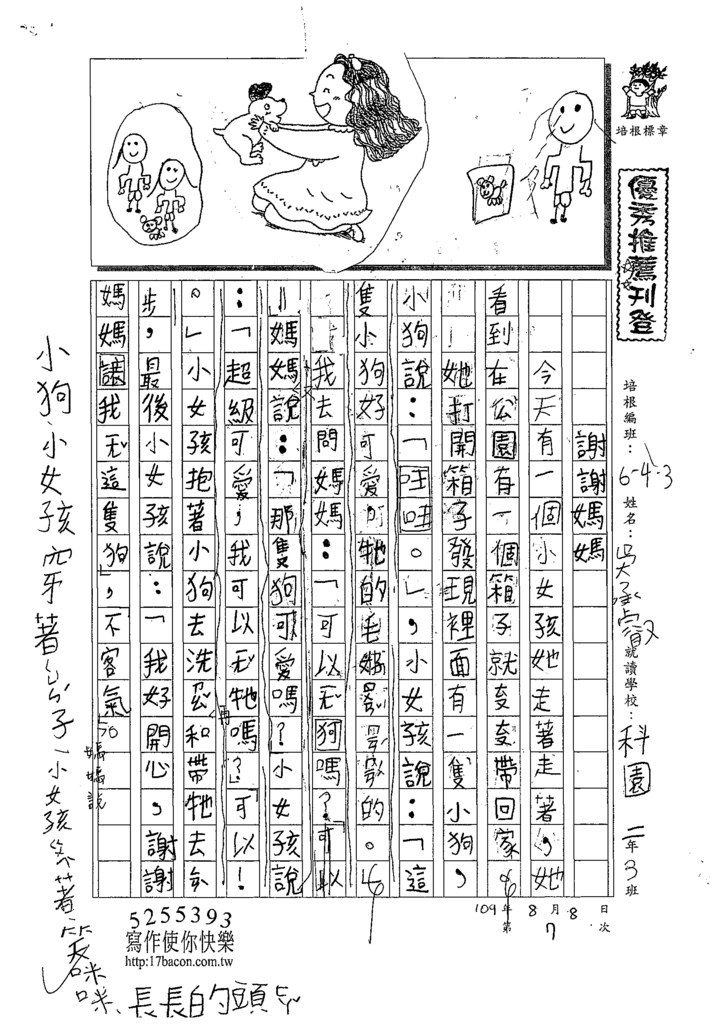 培根標章
優秀推薦刊登
培根編班：6-4-3 姓名：吳承叡 就讀學校：科園 二年3班
109年8月8日
第7次
謝謝媽媽
今天有一個小女孩她走著走著，她
看到在公園有一個箱子就
帶回家
她打開箱子發現裡面有一隻小狗，
小狗說：「哇哇。」，小女孩說：「這
隻小狗好可愛，牠的毛
的。
我去問媽媽：「可以
狗嗎？」可以
媽媽說：「那隻狗可愛嗎？」小女孩說
：「超級可愛，我可以
牠嗎？」可以！
。」小女孩抱著小狗去洗
和帶牠去
步，最後小女孩說：「我好開心，謝謝
媽媽讓我
這隻狗」，不客氣
媽媽說
小狗、小女孩穿著
子、小女孩
著
笑咪咪、長長的頭
5255393
寫作使你快樂
http:17bacon.com.tw